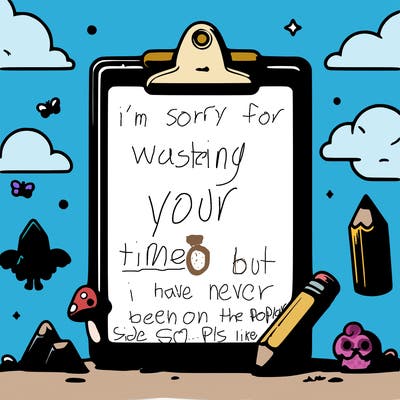 i'm sorry for
wasting
your
time but
i have never
been on the poplar
side so... Pls like